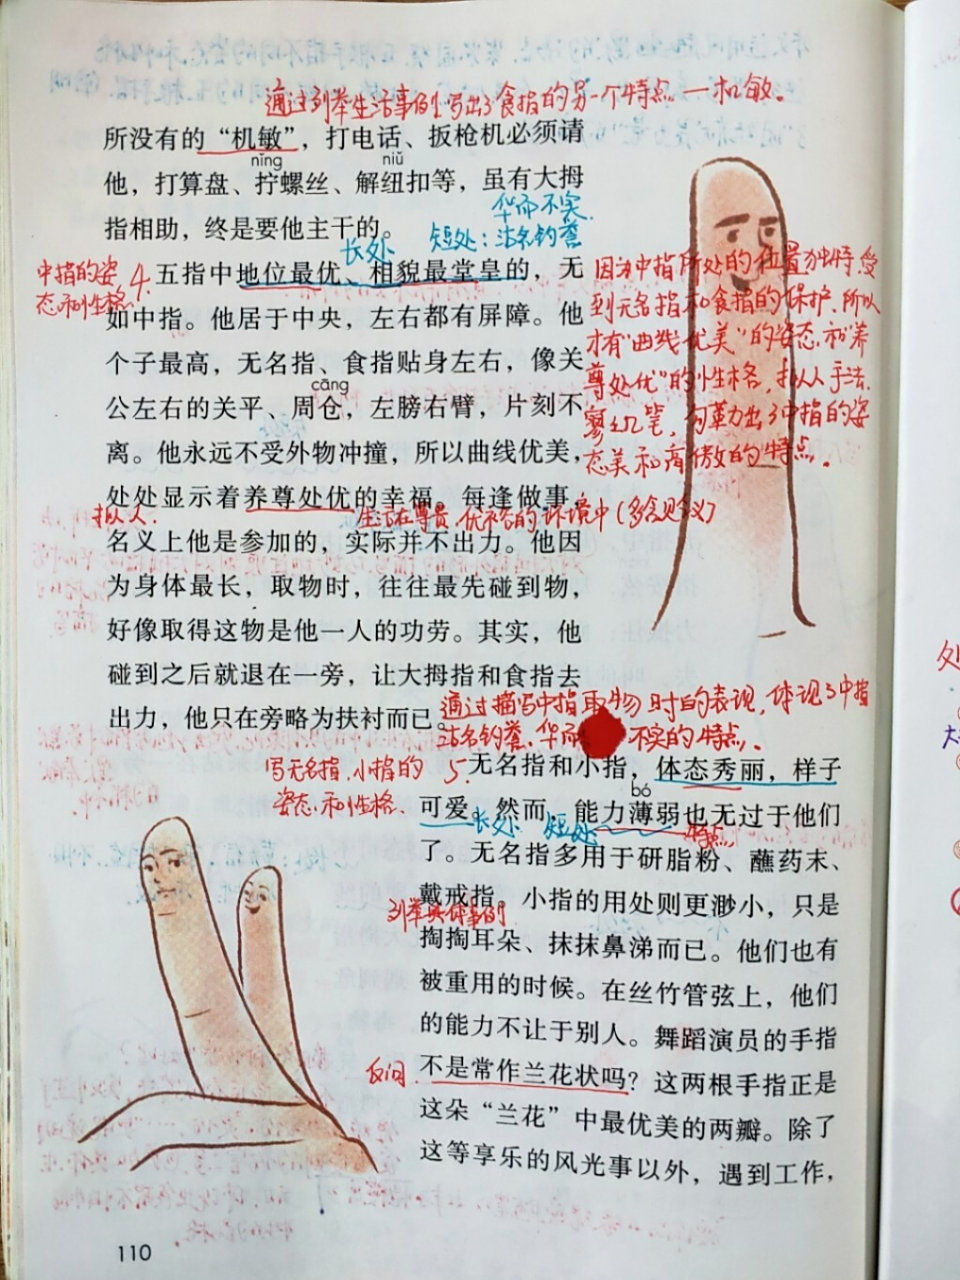 通过列举生活事例写出了食指的另一个特点——机敏。
所没有的“机敏”，打电话、扳枪机必须请
nǐng niǔ
他，打算盘、拧螺丝、解纽扣等，虽有大拇
华而不实
指相助，终是要他主干的。
短处：沽名钓誉
长处
中指的姿态和性格
4.
五指中地位最优、相貌最堂皇的，无
如中指。他居于中央，左右都有屏障。他
个子最高，无名指、食指贴身左右，像关
cāng
公左右的关平、周仓，左膀右臂，片刻不
离。他永远不受外物冲撞，所以曲线优美，
处处显示着养尊处优的幸福。每逢做事，
因为中指所处的位置独特，受
到无名指和食指的保护，所以
才有“曲线优美”的姿态和“养
尊处优”的性格，拟人手法，
寥寥几笔，勾勒出了中指的姿
态美和高傲的特点。
拟人.
生活在尊贵、优裕的环境中（多含贬义）
名义上他是参加的，实际并不出力。他因
为身体最长，取物时，往往最先碰到物，
好像取得这物是他一人的功劳。其实，他
碰到之后就退在一旁，让大拇指和食指去
出力，他只在旁略为扶衬而已。
通过描写中指取物时的表现，体现了中指
沽名钓誉、华而不实的特点。
写无名指、小指的
姿态和性格.
5.
无名指和小指，体态秀丽，样子
bó
可爱。然而，能力薄弱也无过于他们
长处 短处 特点
了。无名指多用于研脂粉、蘸药末、
戴戒指。小指的用处则更渺小，只是
列举具体事例
掏掏耳朵、抹抹鼻涕而已。他们也有
被重用的时候。在丝竹管弦上，他们
的能力不让于别人。舞蹈演员的手指
反问.
不是常作兰花状吗？这两根手指正是
这朵“兰花”中最优美的两瓣。除了
这等享乐的风光事以外，遇到工作，
110